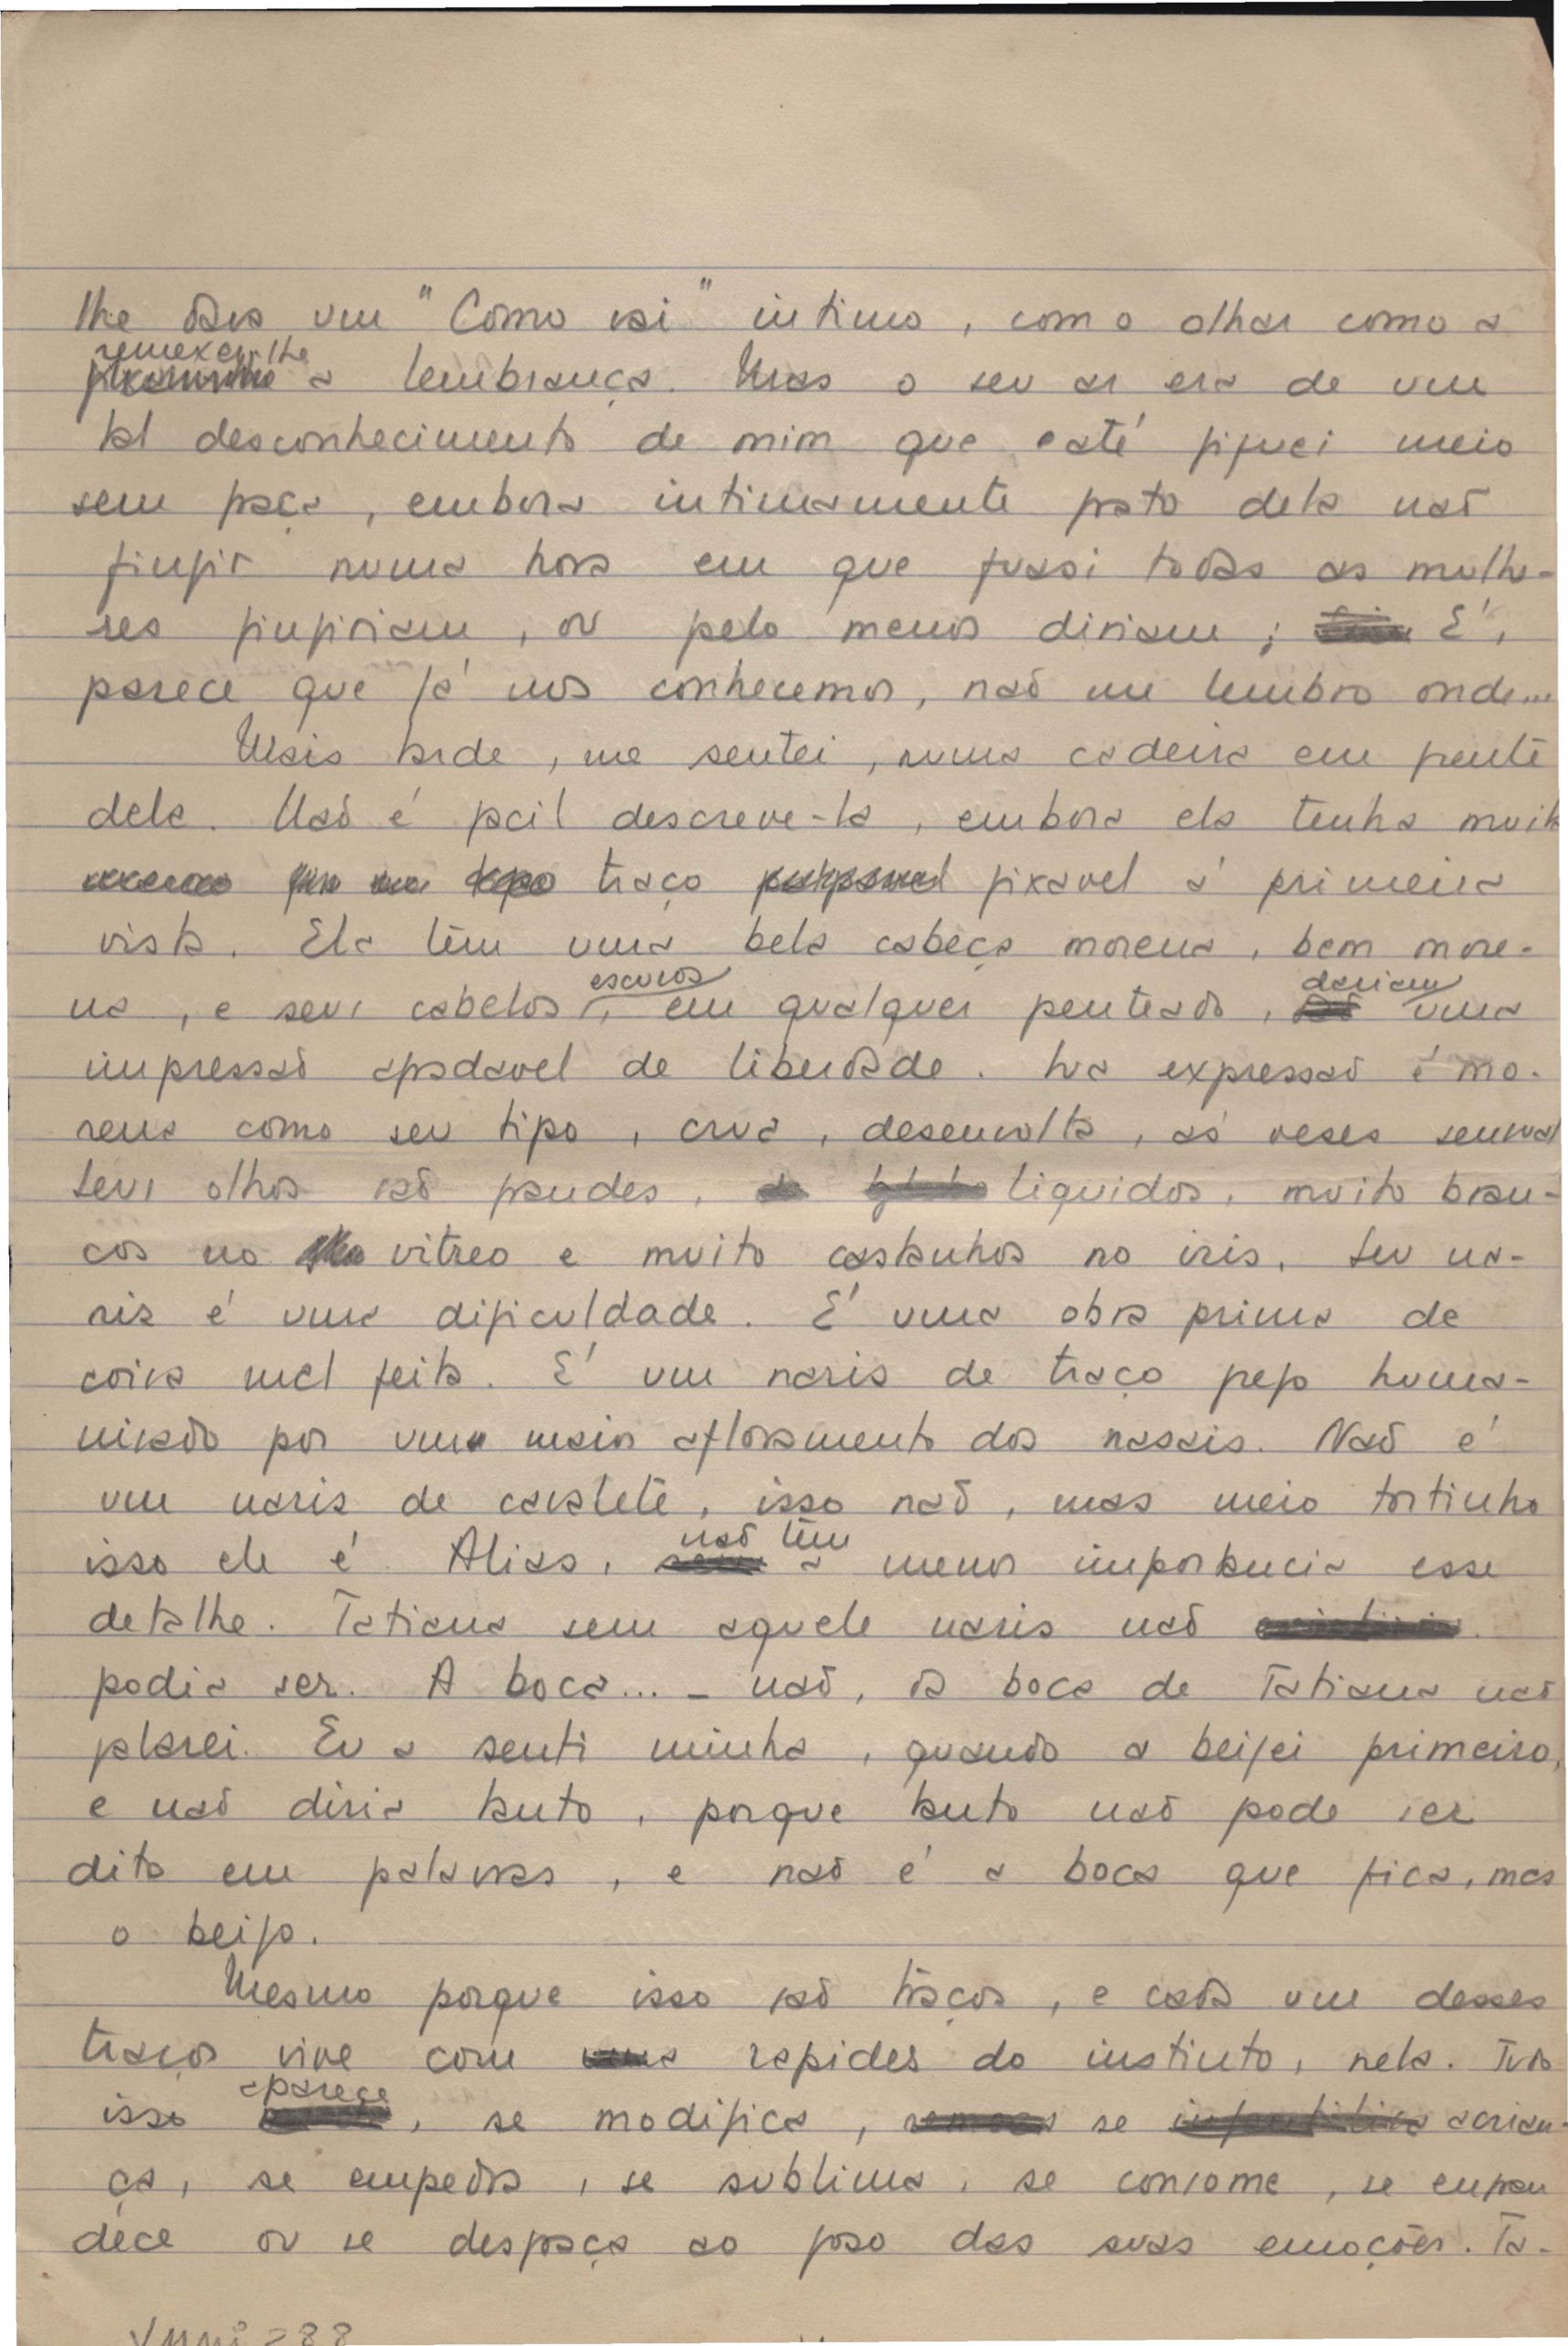 lhe dava um "Como vai" intimo, com o olhar como a
remexer-lhe
a lembrança. Mas o seu ar era de um
tal desconhecimento de mim que até fiquei meio
sem graça, embora intimamente grato dela não
fingir numa hora em que quasi todas as mulhe-
res fingiriam, ou pelo menos diriam; É,
parece que já nos conhecemos, não me lembro onde...
Mais tarde, me sentei, numa cadeira em frente
dela. Não é facil descreve-la, embora ela tenha muito
traço fixavel á primeira
vista. Ela têm uma bela cabeça morena, bem more-
escuros dariam
na, e seus cabelos, em qualquer penteado, uma
impressão agradavel de liberdade. Sua expressão é mo-
rena como seu tipo, crua, desenvolta, ás veses sensual
Seus olhos são grandes, liquidos, muito bran-
cos no vitreo e muito castanhos no iris. Seu na-
ris é uma dificuldade. É uma obra prima de
coisa mal feita. É um naris de traço grego huma-
nisado por um maior afloramento dos nasais. Não é
um naris de cavalete, isso não, mas meio tortinho
não têm
isso ele é. Alias, a menor importancia esse
detalhe. Tatiana sem aquele naris não
podia ser. A boca... - não, da boca de Tatiana não
falarei. Eu a senti minha, quando a beijei primeiro,
e não diria tanto, porque tanto não pode ser
dito em palavras, e não é a boca que fica, mas
o beijo.
Mesmo porque isso são traços, e cada um desses
traços vive com a rapides do instinto, nela. Tudo
aparece
isso, se modifica, se acrian-
ça, se empedra, se sublima, se consome, se engran
dece ou se desgraça ao goso das suas emoções. Ta-